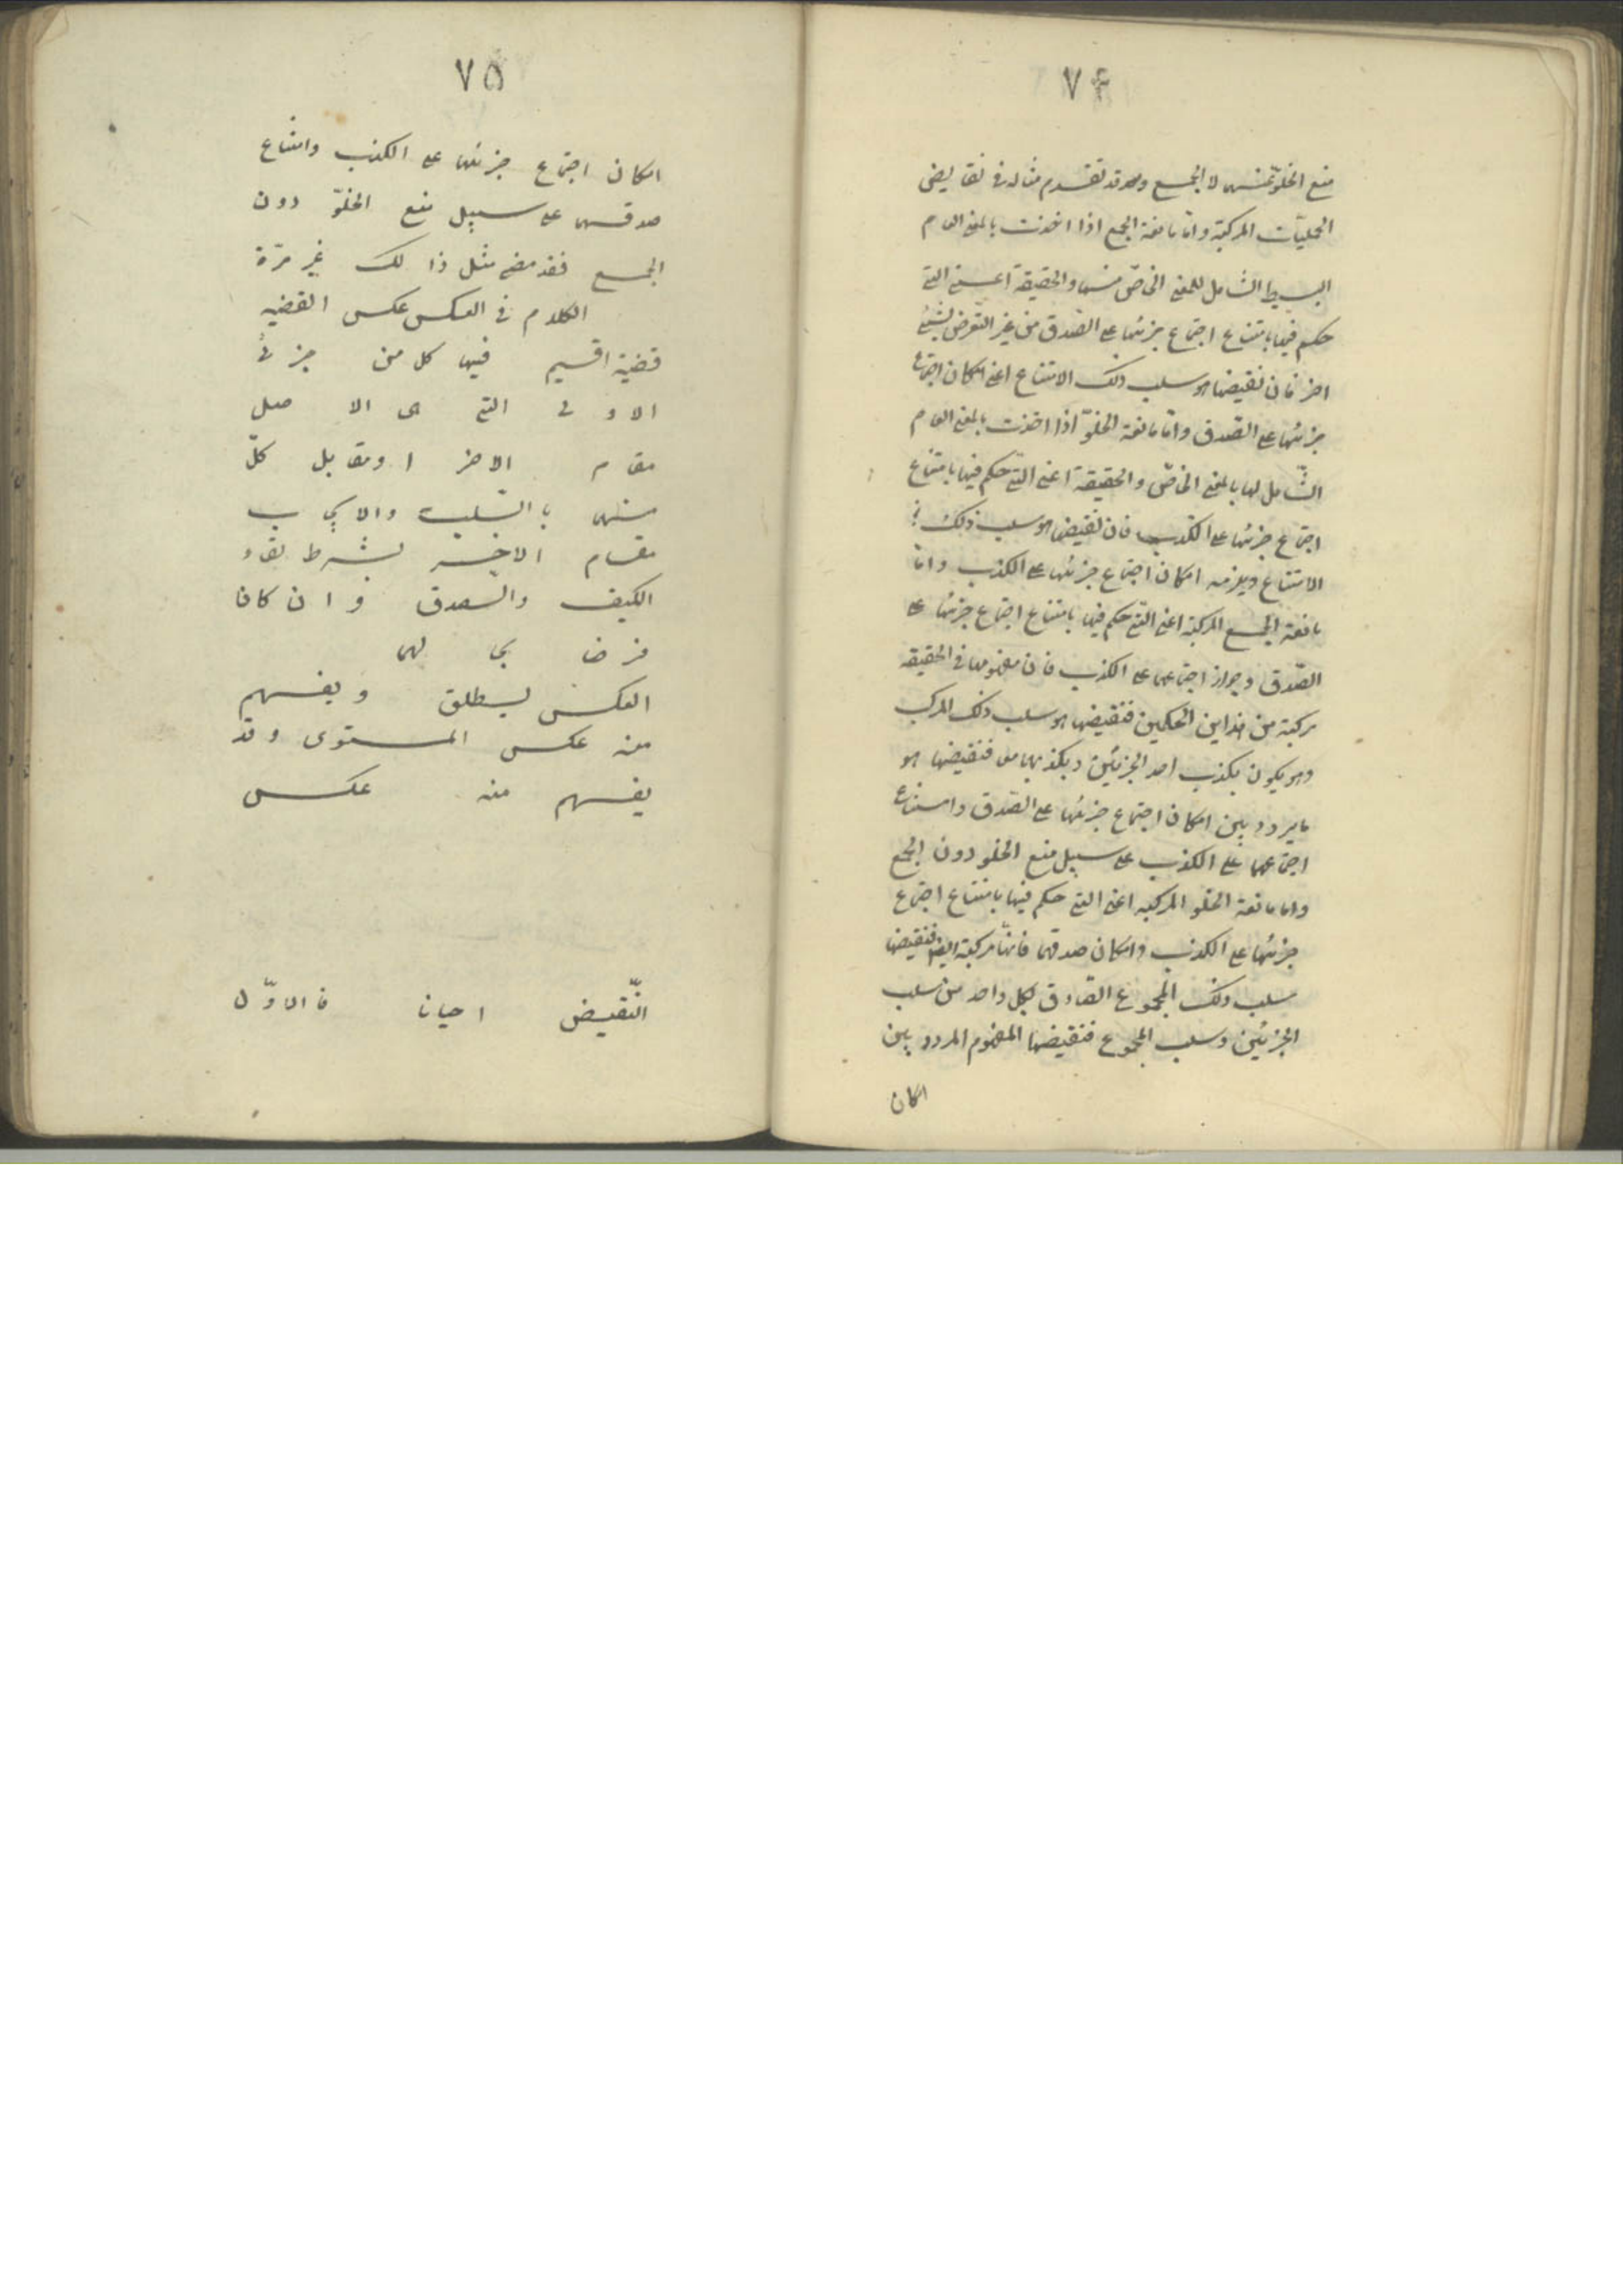 ٧۴
منع الخلوّ منهما لا الجمع وقد تقدم مثاله فى نقايض
الحمليّات المركبة وامّا مانعة الجمع اذا اخذت بالمعنى العام
البسيط الشامل للمعنى الخاصّ منها والحقيقة اعنى التى
حكم فيها بامتناع اجتماع جزئيها على الصّدق من غير التّعرض لشئ
اخر فان نقيضها هو سلب ذلك الامتناع اعنى امكان اجتماع
جزئيها على الصّدق وامّا مانعة الخلوّ اذا اخذت بالمعنى العام
الشّامل لها بالمعنى الخاصّ والحقيقة اعنى التّى حكم فيها بامتناع
اجتماع جزئيها على الكذب فان نقيضها هو سلب ذلك
الامتناع ويلزمه امكان اجتماع جزئيها على الكذب وامّا
مانعة الجمع المركبة اعنى التّى حكم فيها بامتناع اجتماع جزئيها على
الصّدق وجواز اجتماعهما على الكذب فان مفهومها فى الحقيقه
مركبة من هذاين الحكمين فنقيضها هو سلب ذلك المركب
وهو يكون بكذب احد الجزئين وبكذبهما معا فنقيضها هو
ما يردد بين امكان اجتماع جزئيها على الصّدق وامتناع
اجتماعهما على الكذب على سبيل منع الخلو دون الجمع
واما مانعة الخلو المركبه اعنى التى حكم فيها بامتناع اجتماع
جزئيها على الكذب وامكان صدقهما فانّها مركبة ايضا فنقيضها
سلب ذلك المجموع الصّادق بكل واحد من سلب
الجزئين وسلب المجموع فنقيضها المفهوم المردد بين
امكان
٧۵
امكان اجتماع جزئيها على الكذب وامتناع
صدقهما على سبيل منع الخلوّ دون
الجمع فقد مضى مثل ذالك غير مرّة
الكلام فى العكس عكس القضيه
قضية اقيم فيها كل من جزئى
الاولى التى هى الاصل
مقام الاخر او مقابل كلّ
منهما بالسّلب والايجاب
مقام الاخر بشرط بقاء
الكيف والصّدق وان كان
فرضا بحالهما
العكس يطلق ويفهم
منه عكس المستوى وقد
يفهم منه عكس
النّقيض احيانا فالاوّل